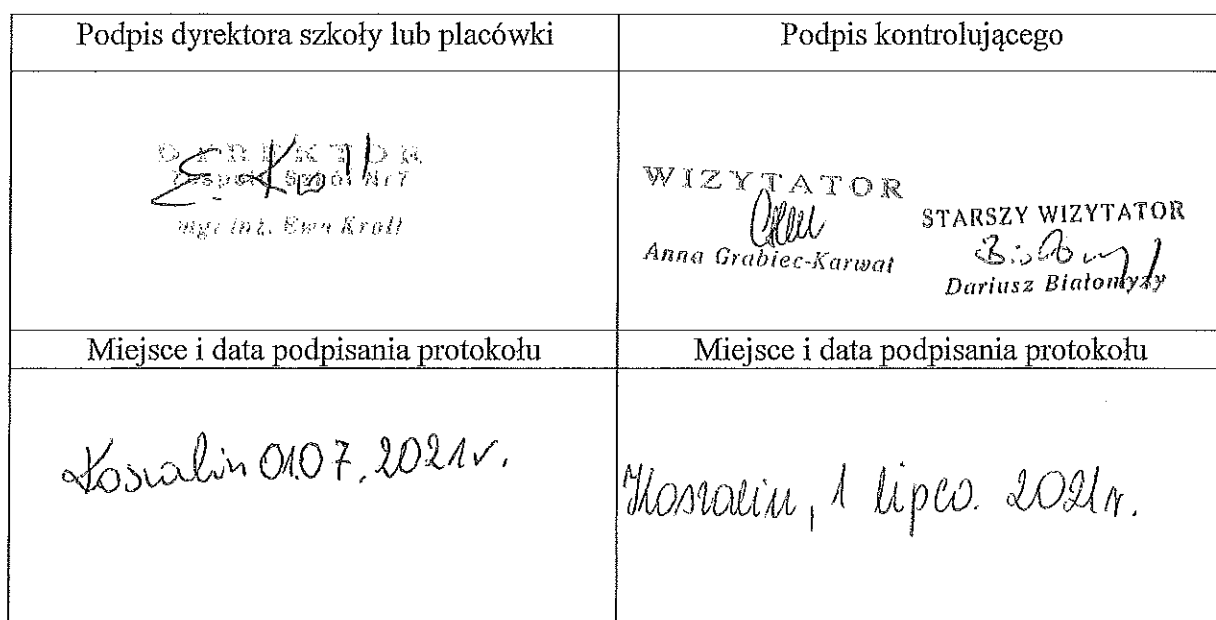 Podpis dyrektora szkoły lub placówki
Podpis kontrolującego
DYREKTOR
Zespołu Szkół Nr 7
mgr inż. Ewa Kroll
WIZYTATOR
Anna Grabiec-Karwat
STARSZY WIZYTATOR
Dariusz Białomyzy
Miejsce i data podpisania protokołu
Miejsce i data podpisania protokołu
Koszalin 01.07.2021r.
Koszalin, 1 lipca. 2021r.